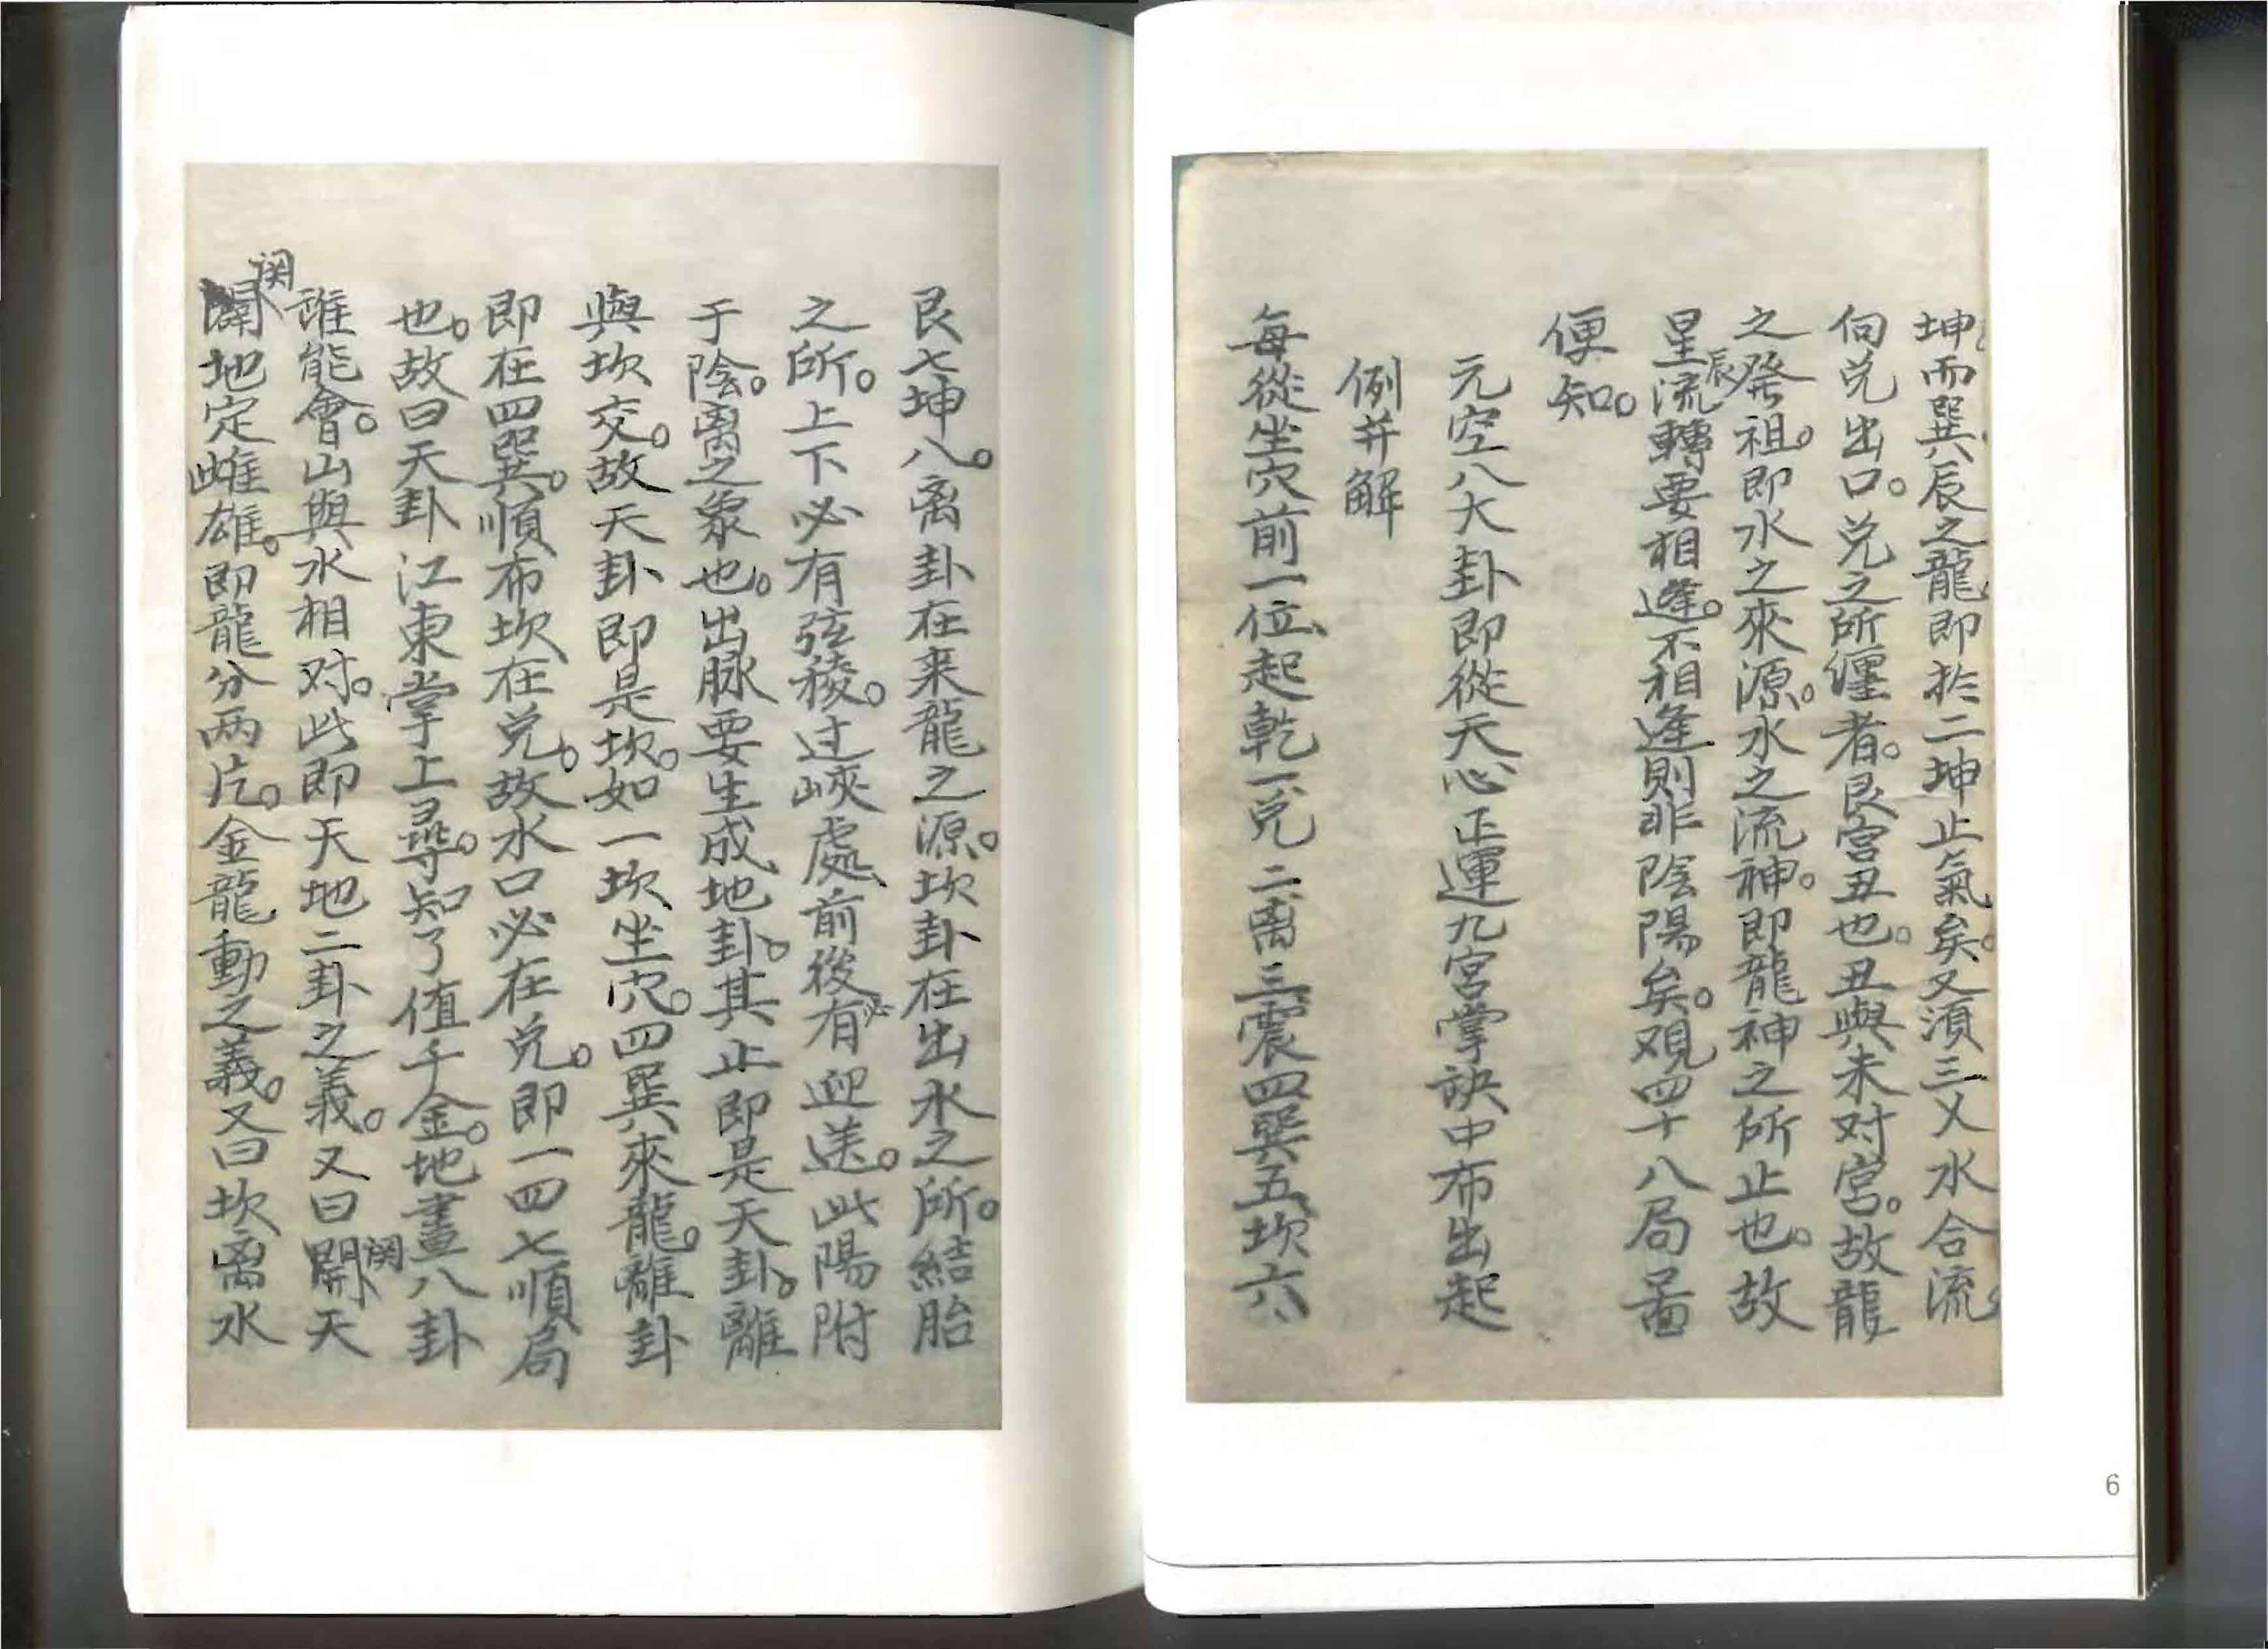 坤而巽辰之龍即於二坤止氣矣。又須三乂水合流
向兌出口。兌之所纏者。艮宮丑也。丑與未对宮。故龍
之發祖。即水之來源。水之流神。即龍神之所止也。故
星辰流轉要相逢。不相逢則非陰陽矣。观四十八局啚
便知。
元空八大卦即從天心正運九宮掌訣中布出起
例并解
每從坐穴前一位、起乾一兌二离三震四巽五坎六
艮七坤八。离卦在来龍之源。坎卦在出水之所。結胎
之所。上下必有弦稜。过峽處、前後必有迎送。此陽附
于陰。离之象也。出脉要生成、地卦。其止即是天卦。離
與坎交。故天卦即是坎。如一坎坐穴。四巽來龍。離卦
即在四巽。順布坎在兌。故水口必在兌。即一四七順局
也。故曰天卦江東掌上尋。知了值千金。地畫八卦
誰能會。山與水相对。此即天地二卦之義。又曰関天
関地定雌雄。即龍分两片。金龍動之義。又曰坎离水
6